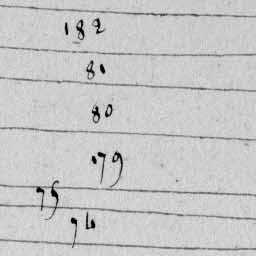 182
81
80
79
75
74